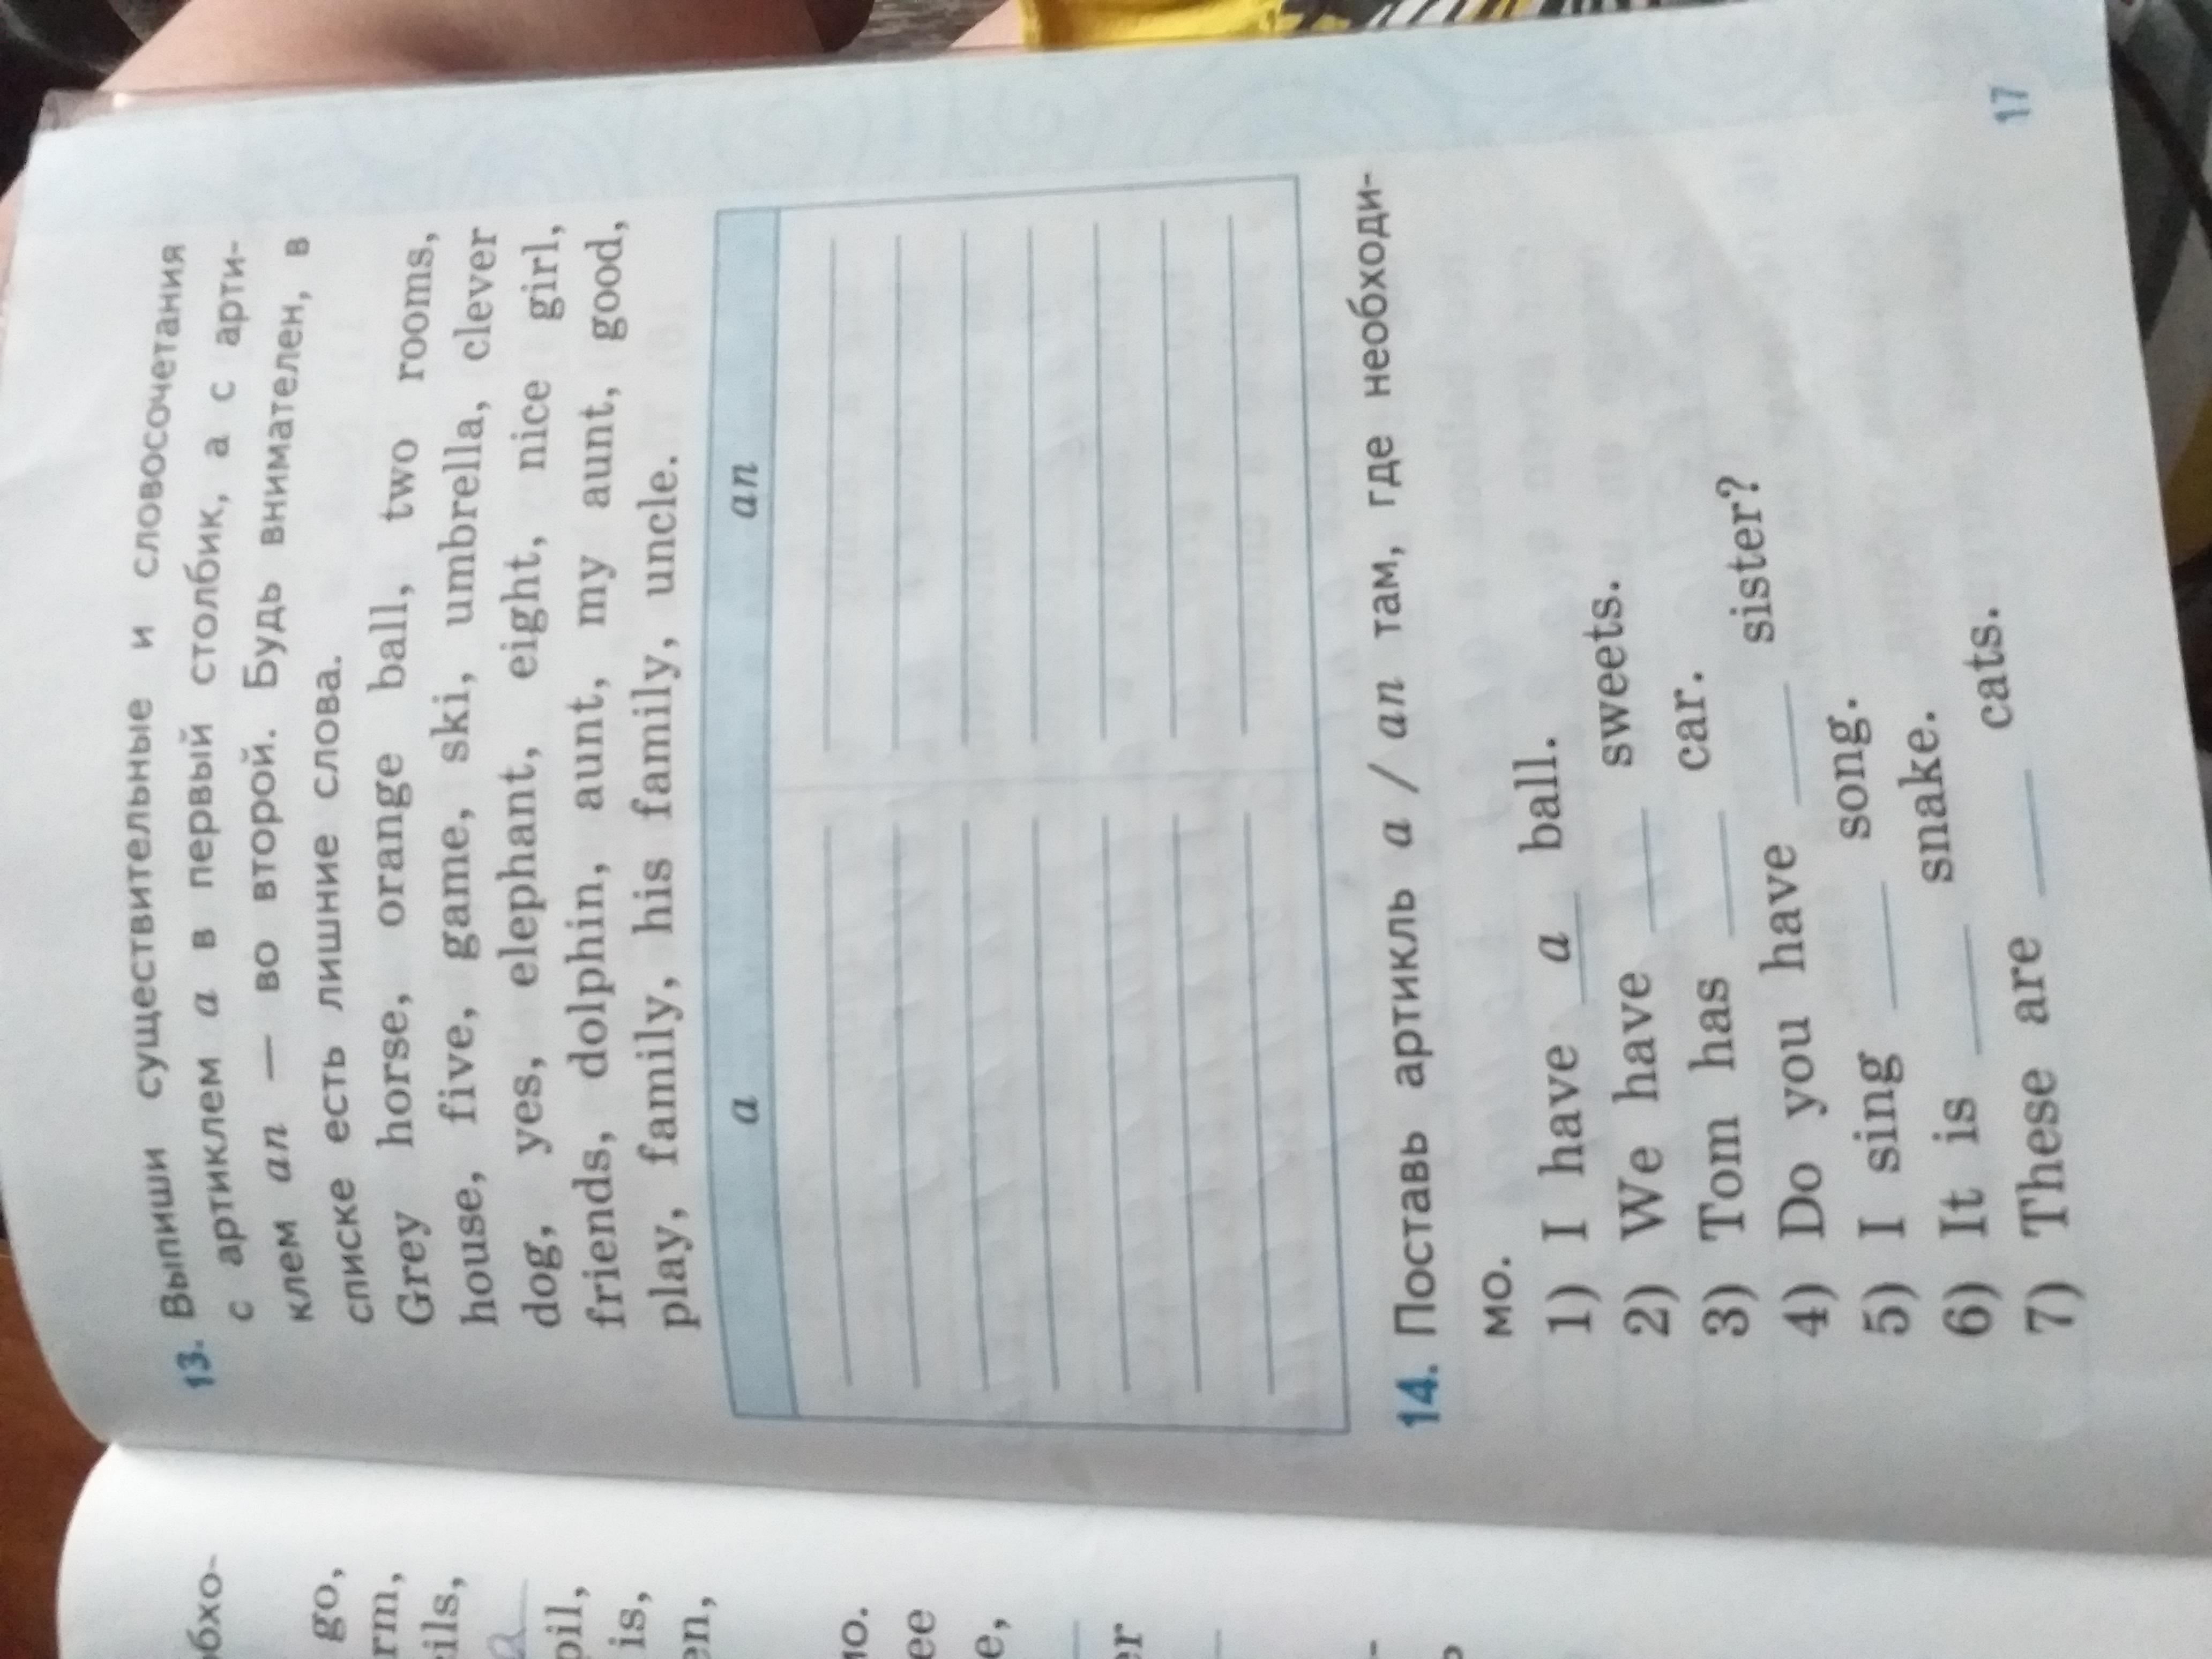 13. Выпиши существительные и словосочетания
с артиклем a в первый столбик, а с арти-
клем an — во второй. Будь внимателен, в
списке есть лишние слова.
Grey horse, orange ball, two rooms,
house, five, game, ski, umbrella, clever
dog, yes, elephant, eight, nice girl,
friends, dolphin, aunt, my aunt, good,
play, family, his family, uncle.
a an
14. Поставь артикль a / an там, где необходи-
мо.
1) I have a ball.
2) We have ___ sweets.
3) Tom has ___ car.
4) Do you have ___ sister?
5) I sing ___ song.
6) It is ___ snake.
7) These are ___ cats.
17
go,
is,